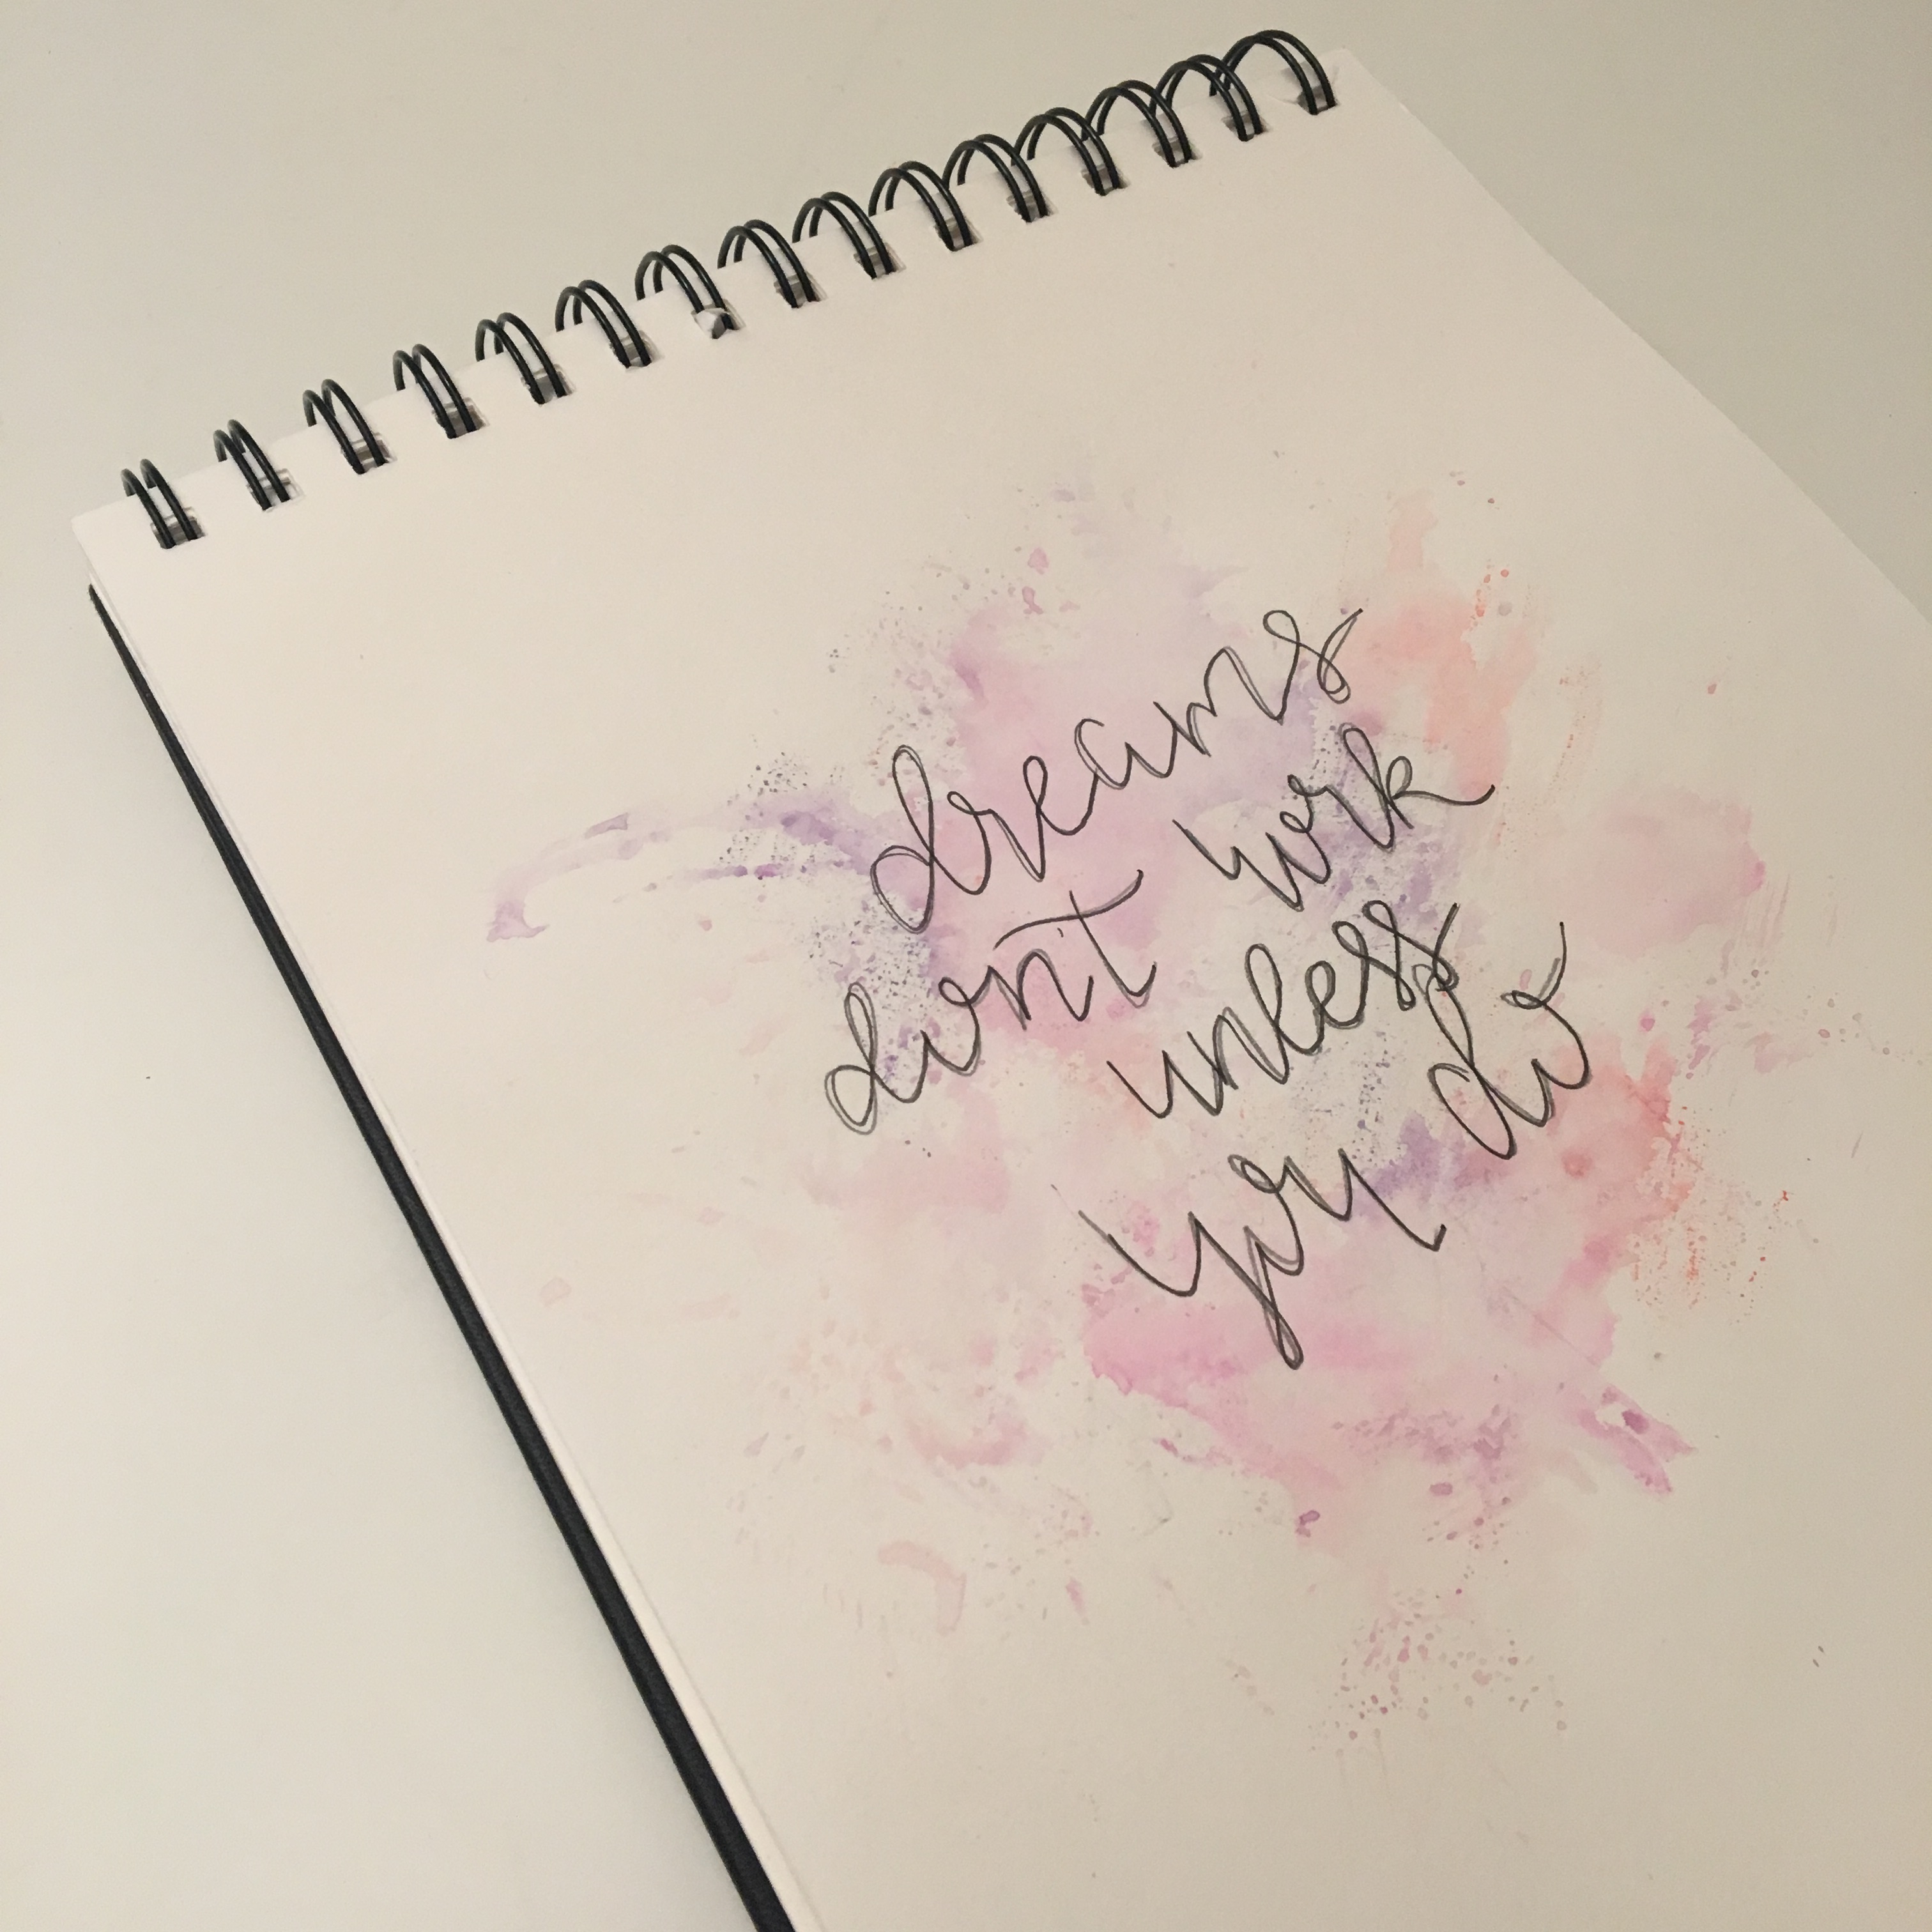 dreams
don't work
unless
you do